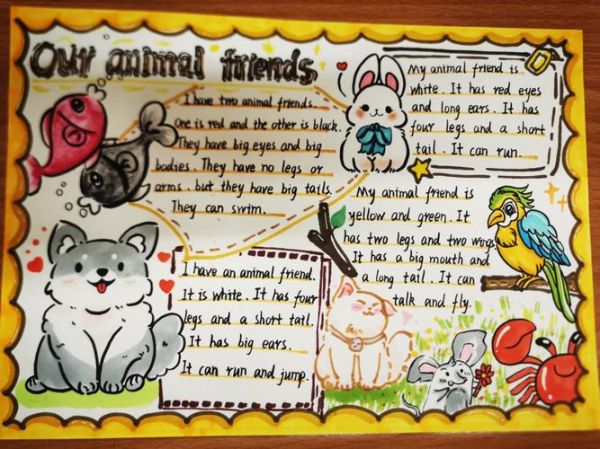 Our animal friends
I have two animal friends.
One is red and the other is black.
They have big eyes and big
bodies. They have no legs or
arms. but they have big tails.
They can swim.
My animal friend is
white. It has red eyes
and long ears. It has
four legs and a short
tail. It can run.
My animal friend is
yellow and green. It
has two legs and two wings
It has a big mouth and
a long tail. It can
talk and fly.
I have an animal friend.
It is white. It has four
legs and a short tail.
It has big ears.
It can run and jump.